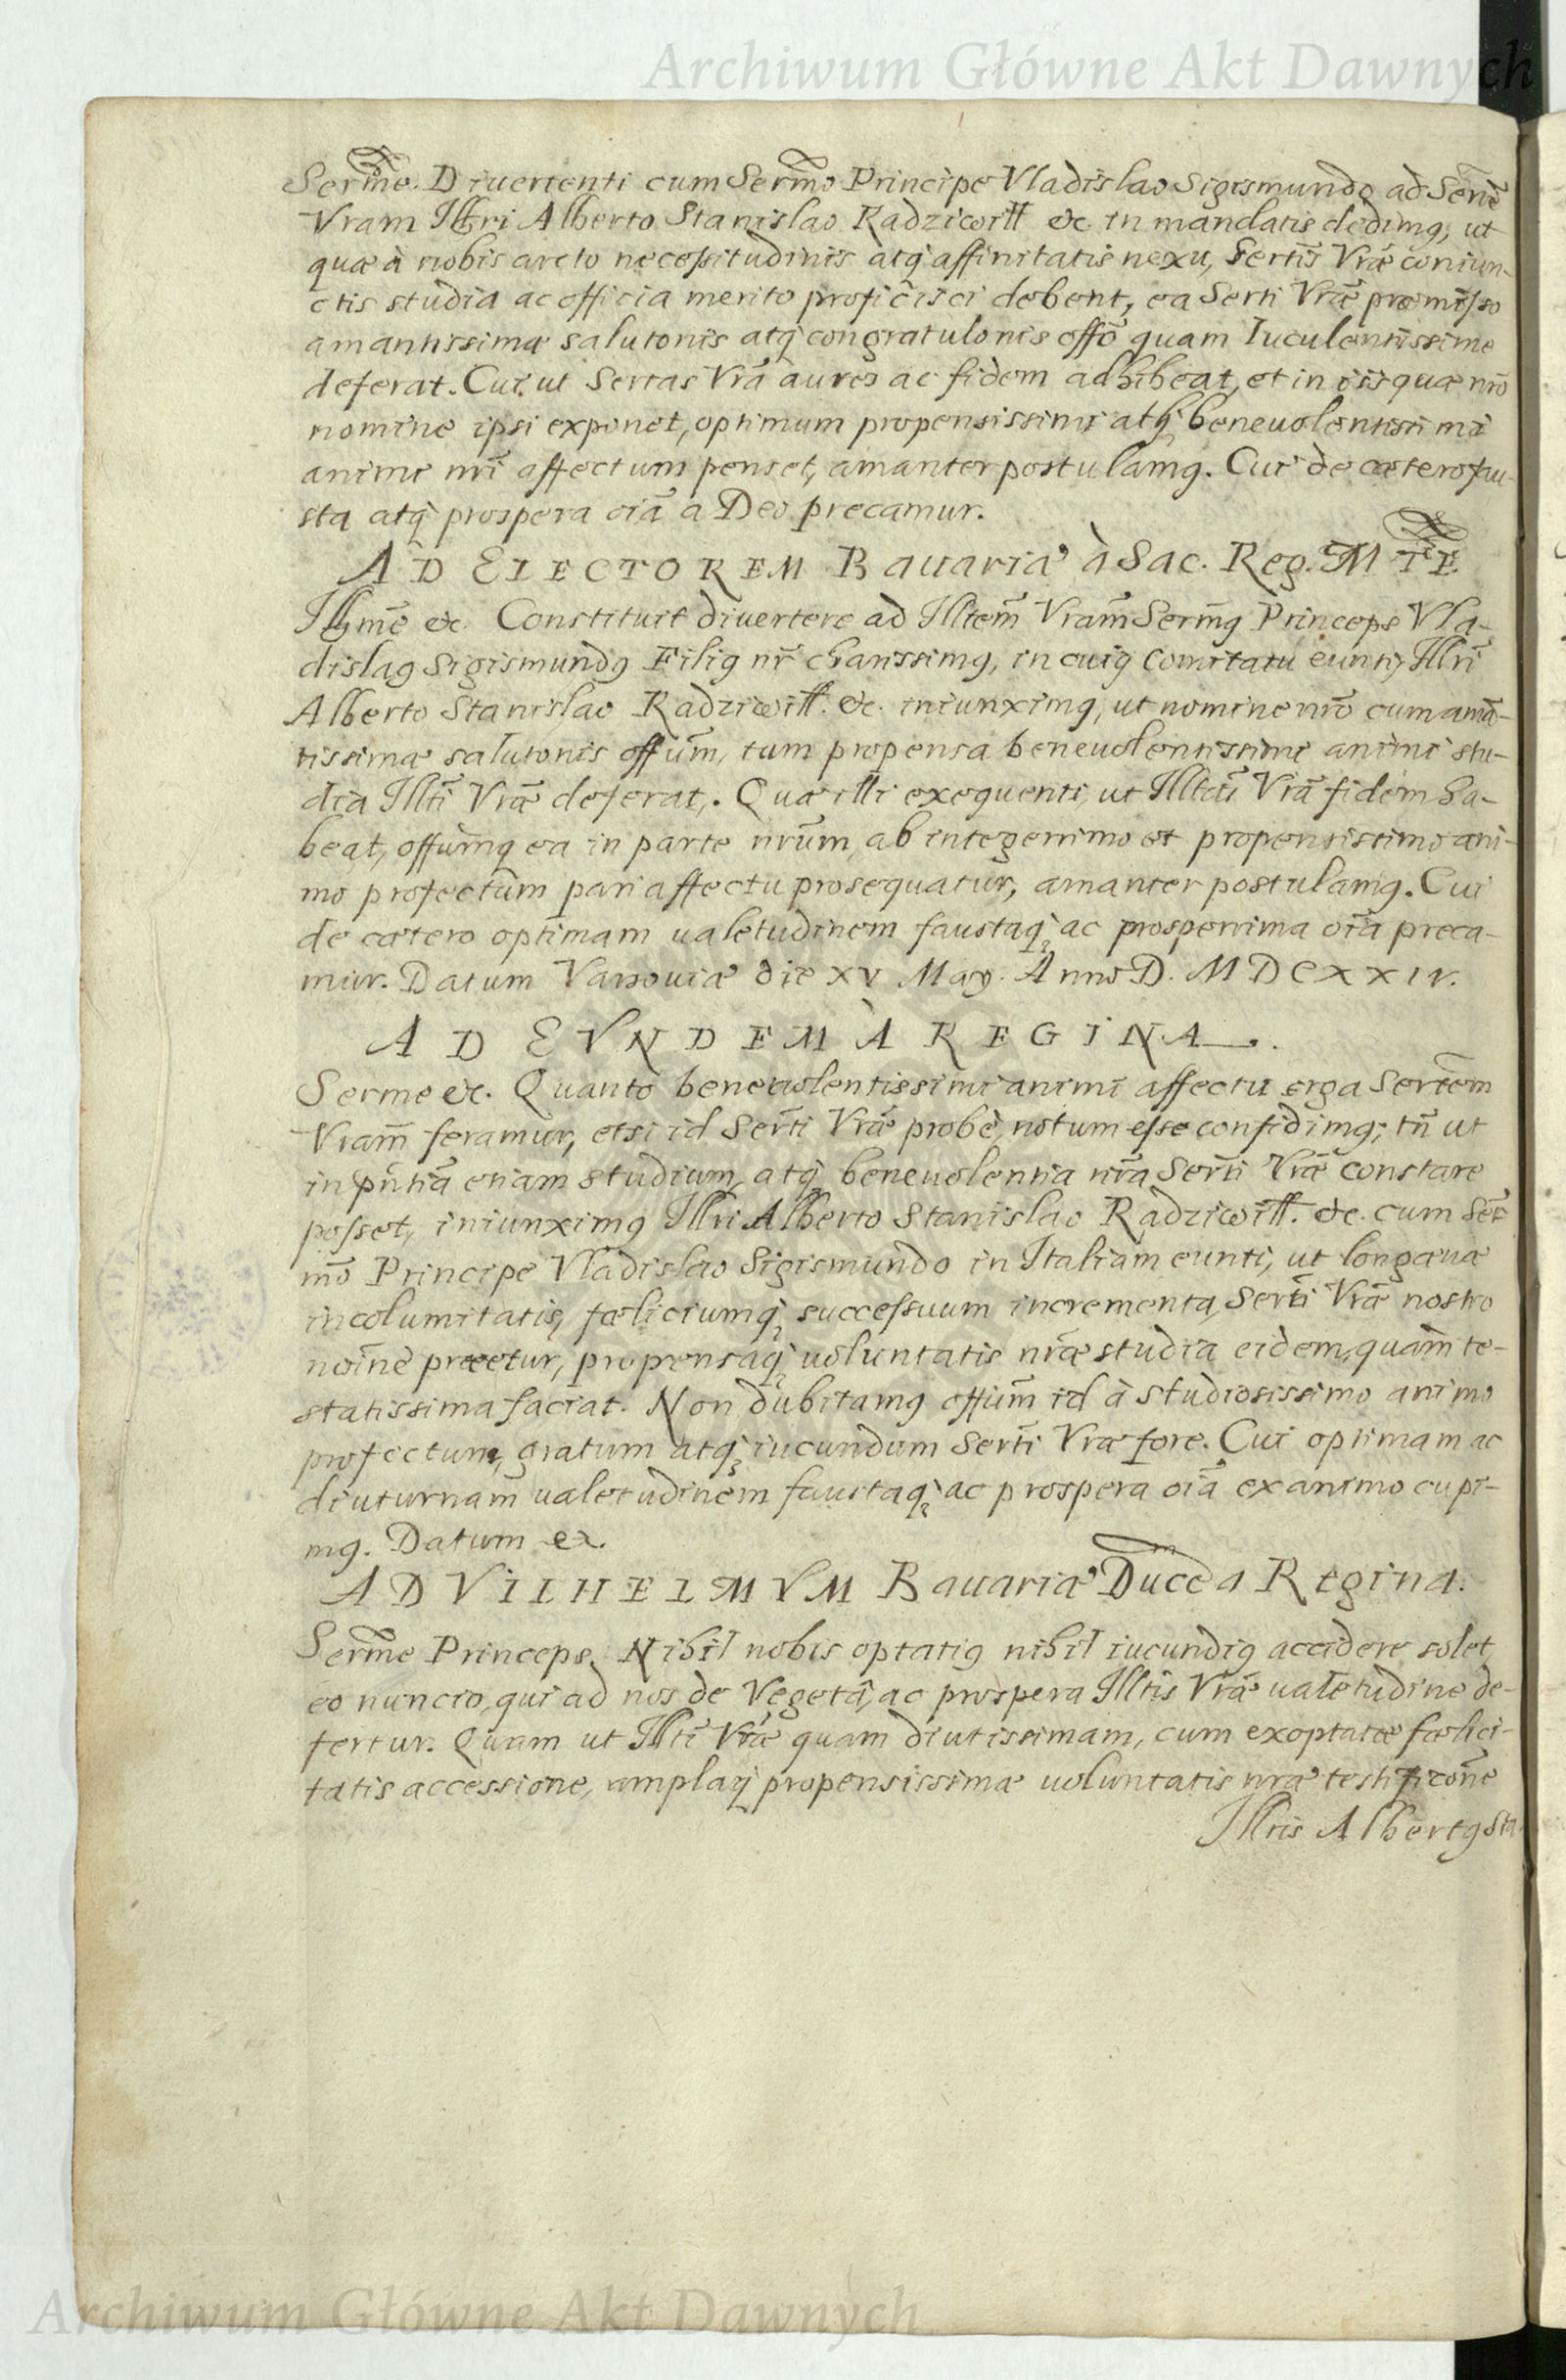 Archiwum Główne Akt Dawnych
Serm̃e. Divertenti cum Serm̃o Principe Vladislao Sigismundo ad Serñẽ
Vram Illri Alberto Stanislao Radziwiłł &c. in mandatis dedimꝰ, ut
quæ à nobis arcto necessitudinis atq̃ affinitatis nexu, Sertis̃ Vræ̃ coniun-
ctis studia ac officia merito proficisci debent, ea Serti Vræ̃ præmisso
amantissimæ salutonis atq̃ congratulonis offõ quam luculentissime
deferat. Cui ut Sertas Vrã aures ac fidem adhibeat, et in iis quæ nrõ
nomine ipsi exponet, optimum propensissimi atq̃ beneuolentissimi
animi nrĩ affectum penset, amanter postulamꝰ. Cui de cætero fau-
sta atq̃ prospera oĩa a Deo precamur.
AD ELECTOREM Bauariæ à Sac. Reg. MTE.
Illmẽ &c. Constituit divertere ad Illtem̃ Vram̃ Serm̃ꝰ Princeps Vla-
dislaꝰ Sigismundꝰ Filiꝰ nr̃ charissimꝰ, in cuiꝰ Comitatu eunti, Illrĩ
Alberto Stanislao Radziwiłł. &c. iniunximꝰ, ut nomine nrõ cum amã-
tissimæ salutonis offum̃, tum propensa beneuolentissimi animi stu-
dia Illtĩ Vræ̃ deferat. Quæ illi exequenti, ut Illtas̃ Vrã fidem ha-
beat, offumqꝫ ea in parte nrũm, ab integerrimo et propensissimo ani-
mo profectum pari affectu prosequatur, amanter postulamꝰ. Cui
de cætero optimam ualetudinem faustaqꝫ ac prosperrima oĩa preca-
mur. Datum Varsouiæ die XV May. Anno D. MDCXXIV.
AD EVNDEM À REGINA.
Serme &c. Quanto beneuolentissimi animi affectu erga Sertem̃
Vram̃ feramur, etsi id Sertĩ Vræ̃ probè notum esse confidimꝰ; tñ ut
in pñtiã etiam studium, atqꝫ beneuolentia nrã Sertĩ Vræ̃ constare
posset, iniunximꝰ Illri Alberto Stanislao Radziwiłł. &c. cum Ser̃-
mõ Principe Vladislao Sigismundo in Italiam eunti, ut longæuæ
incolumitatis, fæliciumqꝫ successuum incrementa, Sertĩ Vræ̃ nostro
noĩne præcetur, propensaqꝫ uoluntatis nræ̃ studia eidem, quam te-
statissima faciat. Non dubitamꝰ offium̃ id à studiosissimo animo
profectum, gratum atqꝫ iucundum Sertĩ Vræ fore. Cui optimam ac
diuturnam ualetudinem faustaqꝫ ac prospera oĩa ex animo cupi-
mꝰ. Datum &c.
AD VILHELMVM Bauariæ Ducem a Regina.
Serm̃e Princeps. Nihil nobis optatiꝰ nihil iucundiꝰ accidere solet,
eo nuncio, qui ad nos de Vegetâ, ac prospera Illtis Vræ̃ ualetudine de-
fertur. Quam ut Illtĩ Vræ̃ quam diutissimam, cum exoptatæ fælici-
tatis accessione, amplaqꝫ propensissimæ uoluntatis nræ testificoñe
Illris Albertꝰ Sta
Archiwum Główne Akt Dawnych